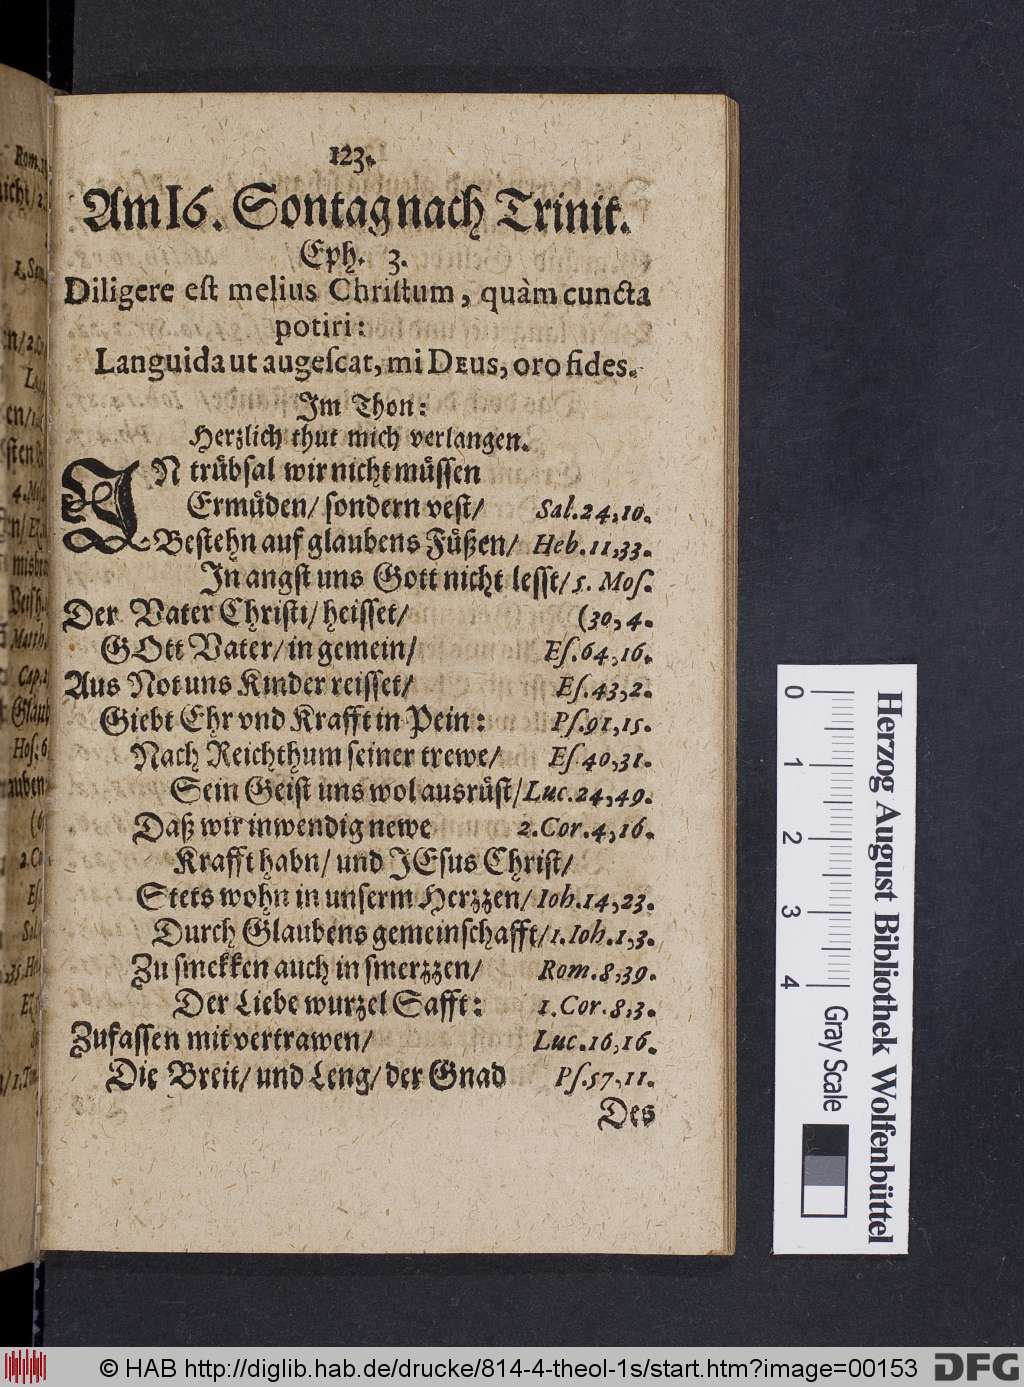 123.
Am 16. Sontag nach Trinit.
Eph. 3.
Diligere est melius Christum, quàm cuncta
potiri:
Languida ut augescat, mi DEus, oro fides.
Im Thon:
Herzlich thut mich verlangen.
IN trübsal wir nicht müssen
Ermüden/ sondern vest/ Sal. 24, 10.
Bestehn auf glaubens Füßen/ Heb. 11, 33.
In angst uns Gott nicht lesst/ 5. Mos.
Der Vater Christi/ heisset/ (30, 4.
GOtt Vater/ in gemein/ Es. 64, 16.
Aus Not uns Kinder reisset/ Es. 43, 2.
Giebt Ehr vnd Krafft in Pein: Ps. 91, 15.
Nach Reichthum seiner trewe/ Es 40, 31.
Sein Geist uns wol ausrüst/ Luc. 24, 49.
Daß wir inwendig newe 2. Cor. 4, 16.
Krafft habn/ und JEsus Christ/
Stets wohn in unserm Herzzen/ Ioh. 14, 23.
Durch Glaubens gemeinschafft/ 1. Ioh. 1, 3.
Zu smekken auch in smerzzen/ Rom. 8, 39.
Der Liebe wurzel Safft: 1. Cor. 8, 3.
Zufassen mit vertrawen/ Luc. 16, 16.
Die Breit/ und Leng/ der Gnad Ps. 57, 11.
Des
0 1 2 3 4
Gray Scale
Herzog August Bibliothek Wolfenbüttel
© HAB http://diglib.hab.de/drucke/814-4-theol-1s/start.htm?image=00153
DFG